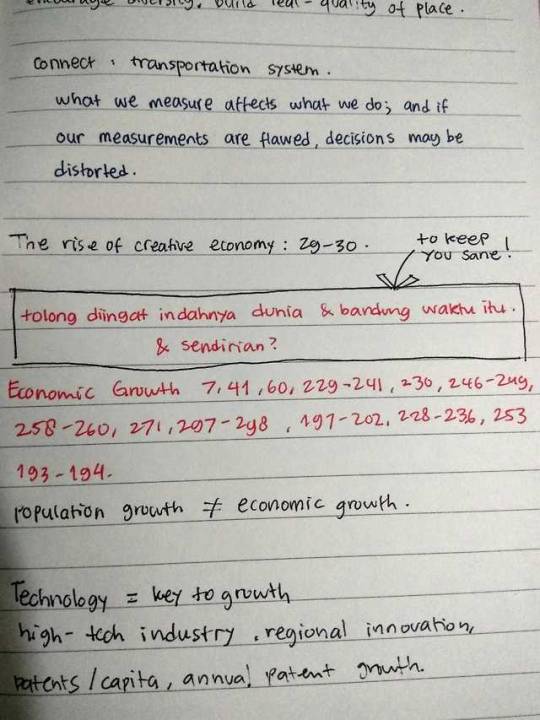 encourage diversity, build real-quality of place.
connect : transportation system.
what we measure affects what we do; and if
our measurements are flawed, decisions may be
distorted.
The rise of creative economy : 29-30.
to keep
you sane!
tolong diingat indahnya dunia & bandung waktu itu.
& sendirian?
Economic Growth 7, 41, 60, 229-241, 230, 246-249,
258-260, 271, 297-298, 197-202, 228-236, 253
193-194.
population growth ≠ economic growth.
Technology = key to growth
high-tech industry, regional innovation,
patents/capita, annual patent growth.